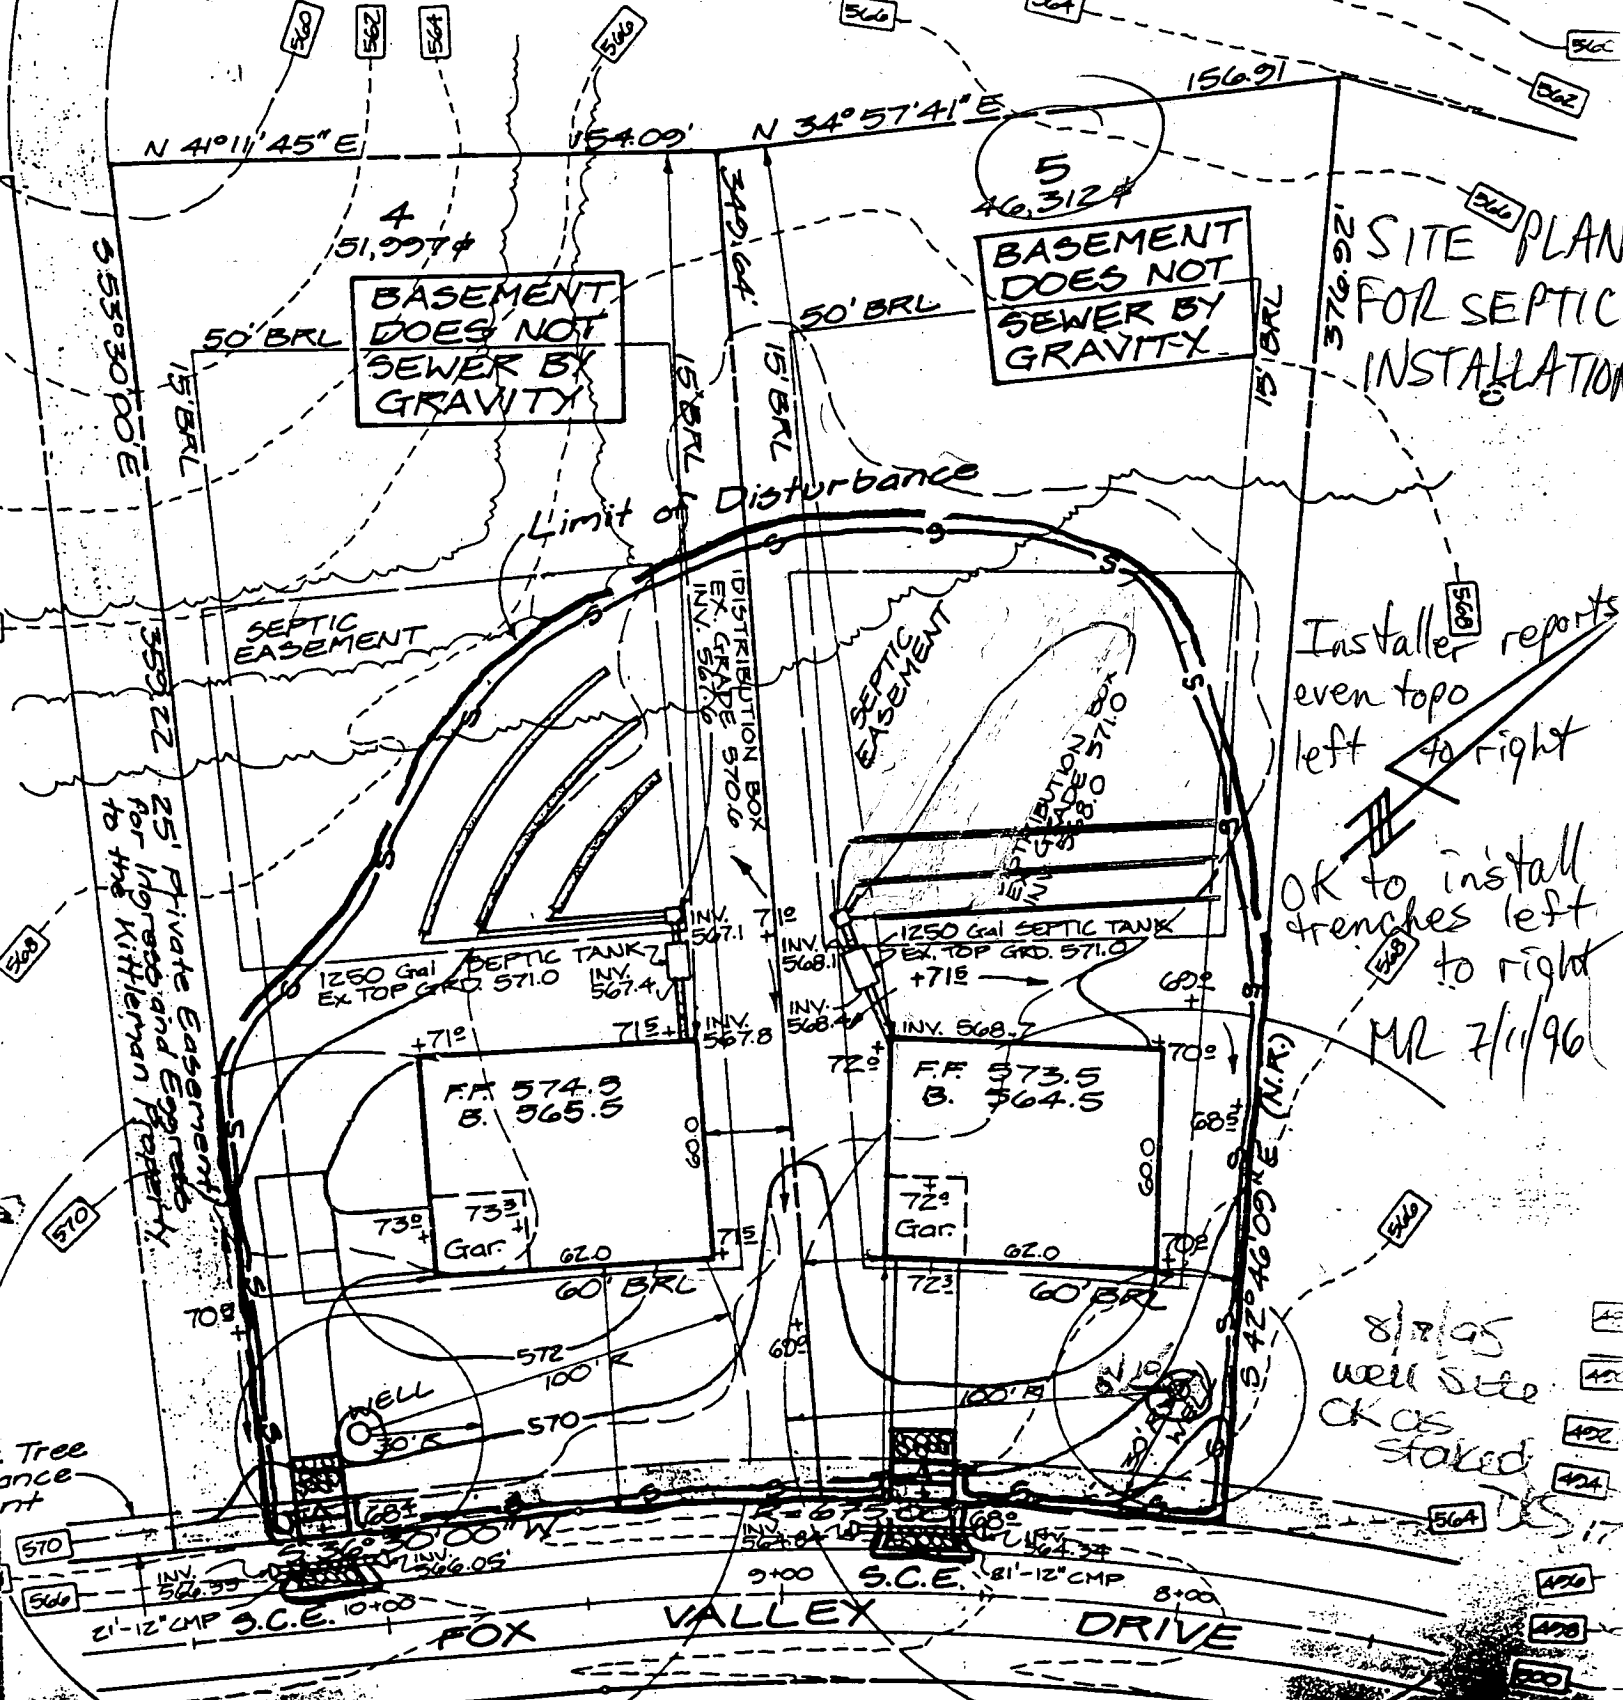 560
562
564
566
566
564
560
562
N 41°11'45" E
154.09'
N 34°57'41" E
156.91
4
51,997
5
46,312
566
BASEMENT
DOES NOT
SEWER BY
GRAVITY
BASEMENT
DOES NOT
SEWER BY
GRAVITY
50' BRL
50' BRL
15' BRL
15' BRL
15' BRL
15' BRL
349.64'
376.92'
S 53°30'00" E
359.22
SITE PLAN
FOR SEPTIC
INSTALLATION
Limit of Disturbance
SEPTIC
EASEMENT
SEPTIC
EASEMENT
DISTRIBUTION BOX
EX. GRADE 570.6
INV. 567.6
DISTRIBUTION BOX
EX. GRADE 571.0
INV. 568.0
568
Installer reports
even topo
left to right
OK to install
trenches left
to right
MR 7/11/96
25' Private Easement
for Ingress and Egress
to the Kittleman Property
568
568
1250 Gal SEPTIC TANK
EX. TOP GRD. 571.0
INV.
567.4
INV.
567.1
1250 Gal SEPTIC TANK
EX. TOP GRD. 571.0
INV.
568.1
INV.
568.4
INV.
567.8
INV. 568.7
+71⁰
71⁵+
71⁰
+71⁵
69⁰
72⁰
70⁰
68⁵
F.F. 574.5
B. 565.5
F.F. 573.5
B. 564.5
60.0
60.0
73⁰
73³
Gar.
62.0
71⁵
72⁰
Gar.
62.0
72³
70⁰
60' BRL
60' BRL
570
566
S 42°46'09" E (N.R.)
70⁸
69⁵
572
100' R
570
WELL
30' R
100' R
Well
8/18/95
well site
OK as
staked
DCS
Tree
570
566
564
68⁴
68⁰
30'00" W
R=675.00
INV.
566.35
INV.
566.05'
INV.
564.84
INV.
564.34
21'-12" CMP
S.C.E.
10+00
9+00
S.C.E.
81'-12" CMP
8+00
FOX VALLEY DRIVE
492
494
496
498
500